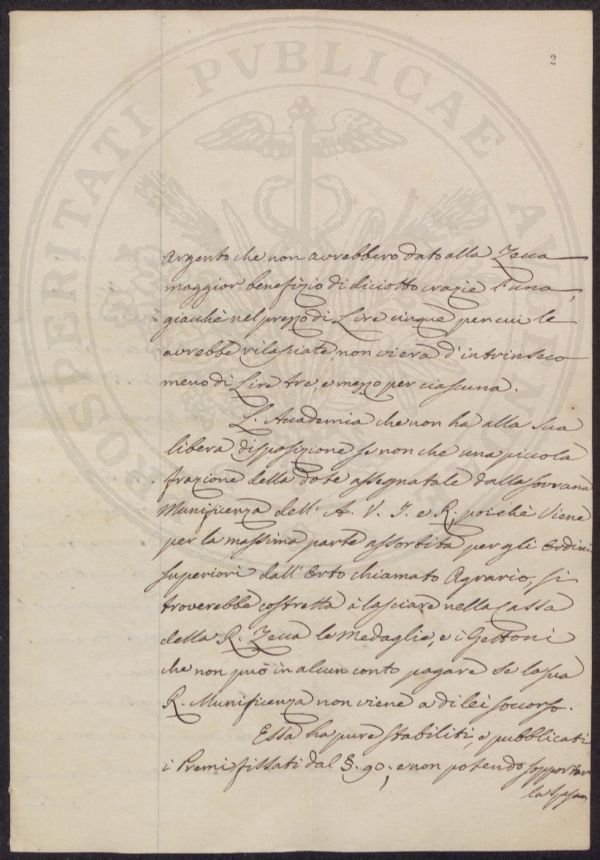 2
PROSPERITATI PVBLICAE AVGENDAE
argento che non avrebbero dato alla Zecca
maggior benefizio di diciotto crazie l'una,
giacchè nel prezzo di Lire cinque per cui le
avrebbe rilasciate non vi era d'intrinseco
meno di Lire tre e mezzo per ciascuna.
L'Accademia che non ha alla sua
libera disposizione se non che una piccola
frazione della dote assegnatale dalla sovrana
Munificenza dell'A. V. I. e R., poichè viene
per la massima parte assorbita per gli Ordini
superiori dall'Orto chiamato Agrario, si
troverebbe costretta a lasciare nella Cassa
della R. Zecca le Medaglie, e i Gettoni
che non può in alcun conto pagare se la sua
R. Munificenza non viene a di lei soccorso.
Essa ha pure stabiliti, e pubblicati
i Premi fissati dal §. 90, e non potendo sopportar
la spesa